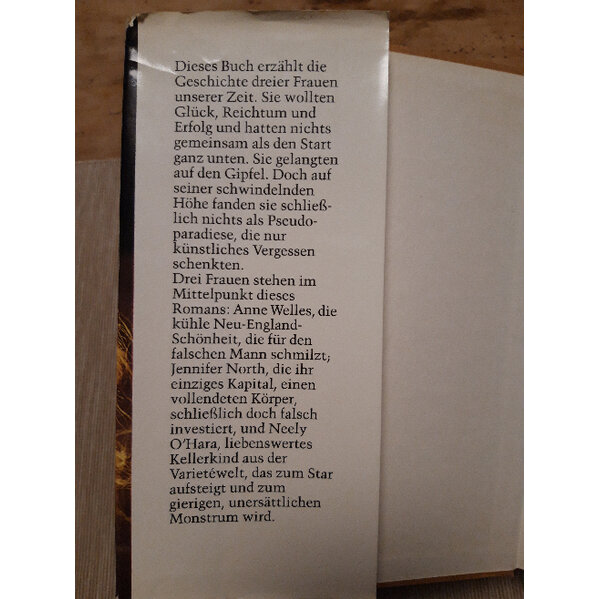 Dieses Buch erzählt die
Geschichte dreier Frauen
unserer Zeit. Sie wollten
Glück, Reichtum und
Erfolg und hatten nichts
gemeinsam als den Start
ganz unten. Sie gelangten
auf den Gipfel. Doch auf
seiner schwindelnden
Höhe fanden sie schließ-
lich nichts als Pseudo-
paradiese, die nur
künstliches Vergessen
schenkten.
Drei Frauen stehen im
Mittelpunkt dieses
Romans: Anne Welles, die
kühle Neu-England-
Schönheit, die für den
falschen Mann schmilzt;
Jennifer North, die ihr
einziges Kapital, einen
vollendeten Körper,
schließlich doch falsch
investiert, und Neely
O'Hara, liebenswertes
Kellerkind aus der
Varietéwelt, das zum Star
aufsteigt und zum
gierigen, unersättlichen
Monstrum wird.